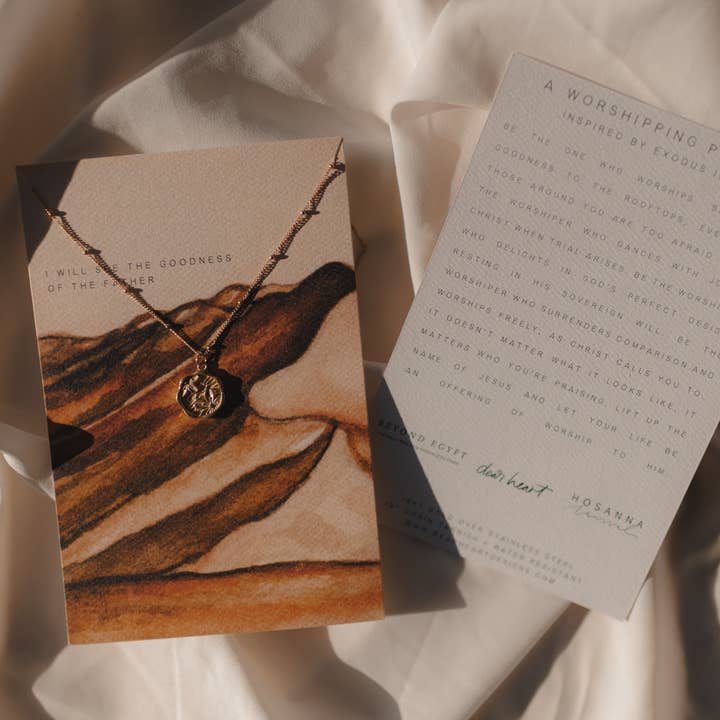 I WILL SEE THE GOODNESS
OF THE FATHER
A WORSHIPPING
INSPIRED BY EXODUS
BE THE ONE WHO WORSHIPS
GOODNESS TO THE ROOFTOPS,
THOSE AROUND YOU ARE TOO AFRAID
THE WORSHIPER WHO DANCES WITH
CHRIST WHEN TRIAL ARISES. BE THE
WHO DELIGHTS IN GOD'S PERFECT
RESTING IN HIS SOVEREIGN WILL. BE THE
WORSHIPER WHO SURRENDERS COMPARISON AND
WORSHIPS FREELY, AS CHRIST CALLS YOU TO
IT DOESN'T MATTER WHAT IT LOOKS LIKE, IT
MATTERS WHO YOU'RE PRAISING. LIFT UP THE
NAME OF JESUS AND LET YOUR LIFE BE
AN OFFERING OF WORSHIP TO HIM
BEYOND EGYPT
dear heart
HOSANNA
14KT GOLD OVER STAINLESS STEEL
CHAIN TARNISH + WATER RESISTANT
WWW.DEARHEARTDESIGNS.COM